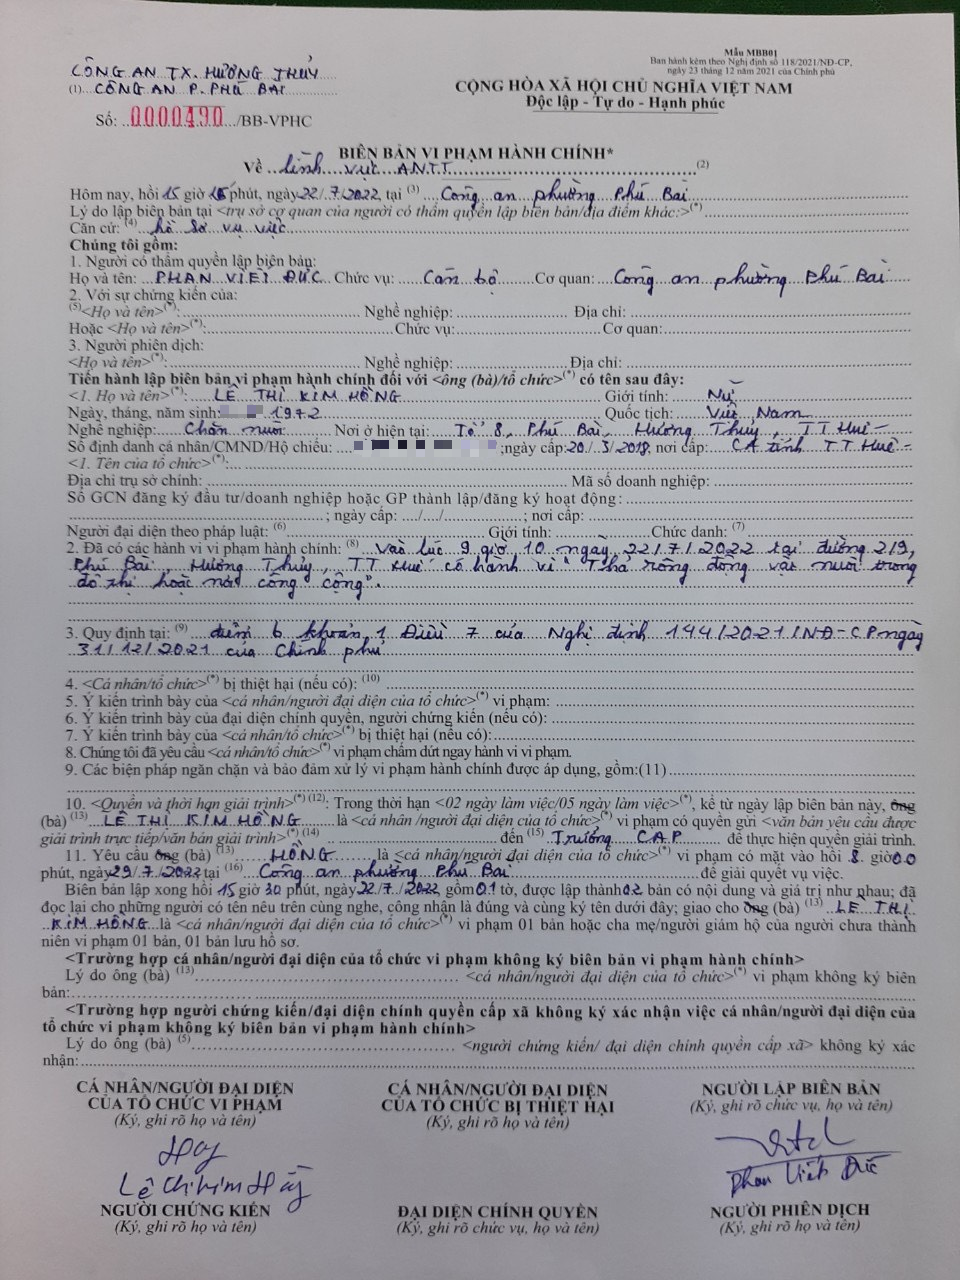 Mẫu MBB01
Ban hành kèm theo Nghị định số 118/2021/NĐ-CP,
ngày 23 tháng 12 năm 2021 của Chính phủ
CÔNG AN TX. HƯƠNG THUỶ
(1) CÔNG AN P. PHÚ BÀI
CỘNG HÒA XÃ HỘI CHỦ NGHĨA VIỆT NAM
Độc lập - Tự do - Hạnh phúc
Số: 0000490 /BB-VPHC
BIÊN BẢN VI PHẠM HÀNH CHÍNH*
Về lĩnh vực ANTT (2)
Hôm nay, hồi 15 giờ phút, ngày 22/7/2022, tại (3) Công an phường Phú Bài
Lý do lập biên bản tại <trụ sở cơ quan của người có thẩm quyền lập biên bản/địa điểm khác:>(*)
Căn cứ: (4) hồ sơ vụ việc
Chúng tôi gồm:
1. Người có thẩm quyền lập biên bản:
Họ và tên: PHAN VIẾT ĐỨC Chức vụ: Cán bộ Cơ quan: Công an phường Phú Bài
2. Với sự chứng kiến của:
(5)<Họ và tên>(*): Nghề nghiệp: Địa chỉ:
Hoặc <Họ và tên>(*): Chức vụ: Cơ quan:
3. Người phiên dịch:
<Họ và tên>(*): Nghề nghiệp: Địa chỉ:
Tiến hành lập biên bản vi phạm hành chính đối với <ông (bà)/tổ chức>(*) có tên sau đây:
<1. Họ và tên>(*): LÊ THỊ KIM HỒNG Giới tính: Nữ
Ngày, tháng, năm sinh: 1972 Quốc tịch: Việt Nam
Nghề nghiệp: Chăn nuôi Nơi ở hiện tại: Tổ 8, Phú Bài, Hương Thuỷ, TT Huế
Số định danh cá nhân/CMND/Hộ chiếu: ; ngày cấp: 20/3/2018, nơi cấp: CA tỉnh TT Huế
<1. Tên của tổ chức>(*):
Địa chỉ trụ sở chính: Mã số doanh nghiệp:
Số GCN đăng ký đầu tư/doanh nghiệp hoặc GP thành lập/đăng ký hoạt động:
; ngày cấp: .../.../ ; nơi cấp:
Người đại diện theo pháp luật: (6) Giới tính: Chức danh: (7)
2. Đã có các hành vi vi phạm hành chính: (8) Vào lúc 9 giờ 10 ngày 22/7/2022 tại đường 2/9,
Phú Bài, Hương Thủy, TT Huế có hành vi "Thả rông động vật nuôi trong
đô thị hoặc nơi công cộng".
3. Quy định tại: (9) điểm b khoản 1 Điều 7 của Nghị định 144/2021/NĐ-CP ngày
31/12/2021 của Chính phủ
4. <Cá nhân/tổ chức>(*) bị thiệt hại (nếu có): (10)
5. Ý kiến trình bày của <cá nhân/người đại diện của tổ chức>(*) vi phạm:
6. Ý kiến trình bày của đại diện chính quyền, người chứng kiến (nếu có):
7. Ý kiến trình bày của <cá nhân/tổ chức>(*) bị thiệt hại (nếu có):
8. Chúng tôi đã yêu cầu <cá nhân/tổ chức>(*) vi phạm chấm dứt ngay hành vi vi phạm.
9. Các biện pháp ngăn chặn và bảo đảm xử lý vi phạm hành chính được áp dụng, gồm:(11)
10. <Quyền và thời hạn giải trình>(*) (12): Trong thời hạn <02 ngày làm việc/05 ngày làm việc>(*), kể từ ngày lập biên bản này, ông
(bà) (13) LÊ THỊ KIM HỒNG là <cá nhân /người đại diện của tổ chức>(*) vi phạm có quyền gửi <văn bản yêu cầu được
giải trình trực tiếp/văn bản giải trình>(*) (14) đến (15) Trưởng CAP để thực hiện quyền giải trình.
11. Yêu cầu ông (bà) (13) HỒNG là <cá nhân/người đại diện của tổ chức>(*) vi phạm có mặt vào hồi 8 giờ 00
phút, ngày 29/7/2022 tại (16) Công an phường Phú Bài để giải quyết vụ việc.
Biên bản lập xong hồi 15 giờ 30 phút, ngày 22/7/2022 gồm 01 tờ, được lập thành 02 bản có nội dung và giá trị như nhau; đã
đọc lại cho những người có tên nêu trên cùng nghe, công nhận là đúng và cùng ký tên dưới đây; giao cho ông (bà) (13) LÊ THỊ
KIM HỒNG là <cá nhân/người đại diện của tổ chức>(*) vi phạm 01 bản hoặc cha mẹ/người giám hộ của người chưa thành
niên vi phạm 01 bản, 01 bản lưu hồ sơ.
<Trường hợp cá nhân/người đại diện của tổ chức vi phạm không ký biên bản vi phạm hành chính>
Lý do ông (bà) (13) <cá nhân/người đại diện của tổ chức>(*) vi phạm không ký biên
bản:
<Trường hợp người chứng kiến/đại diện chính quyền cấp xã không ký xác nhận việc cá nhân/người đại diện của
tổ chức vi phạm không ký biên bản vi phạm hành chính>
Lý do ông (bà) (5) <người chứng kiến/ đại diện chính quyền cấp xã> không ký xác
nhận:
CÁ NHÂN/NGƯỜI ĐẠI DIỆN
CỦA TỔ CHỨC VI PHẠM
(Ký, ghi rõ họ và tên)
Lê Thị Kim Hồng
CÁ NHÂN/NGƯỜI ĐẠI DIỆN
CỦA TỔ CHỨC BỊ THIỆT HẠI
(Ký, ghi rõ họ và tên)
NGƯỜI LẬP BIÊN BẢN
(Ký, ghi rõ chức vụ, họ và tên)
Phan Viết Đức
NGƯỜI CHỨNG KIẾN
(Ký, ghi rõ họ và tên)
ĐẠI DIỆN CHÍNH QUYỀN
(Ký, ghi rõ chức vụ, họ và tên)
NGƯỜI PHIÊN DỊCH
(Ký, ghi rõ họ và tên)